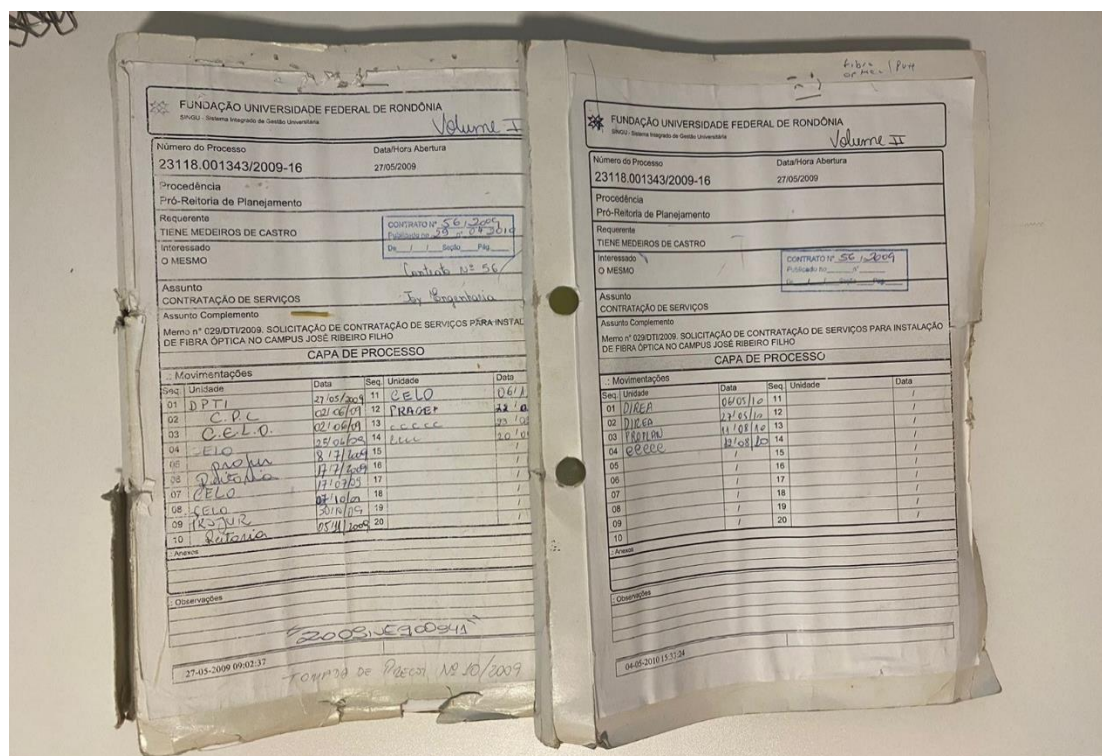 FUNDAÇÃO UNIVERSIDADE FEDERAL DE RONDÔNIA
SINGU - Sistema Integrado de Gestão Universitária
Volume I
Número do Processo
Data/Hora Abertura
23118.001343/2009-16
27/05/2009
Procedência
Pró-Reitoria de Planejamento
Requerente
TIENE MEDEIROS DE CASTRO
CONTRATO Nº 56, 2009
Interessado
O MESMO
Contrato Nº 56/
Assunto
CONTRATAÇÃO DE SERVIÇOS
Engenharia
Assunto Complemento
Memo n° 029/DTI/2009. SOLICITAÇÃO DE CONTRATAÇÃO DE SERVIÇOS PARA INSTAL
DE FIBRA ÓPTICA NO CAMPUS JOSÉ RIBEIRO FILHO
CAPA DE PROCESSO
.: Movimentações
Seq Unidade Data Seq Unidade Data
01 DPTI 27/05/2009 11 CELO 06/1
02 C.P.L 02/06/09 12 PRAGEP
03 C.E.L.O. 02/06/09 13
04 CELO 25/06/09 14
05 Projur 8/7/2009 15
06 Reitoria 17/7/2009 16
07 CELO 17/07/09 17
08 CELO 07/10/09 18
09 PROJUR 30/10/09 19
10 Reitoria 05/11/2009 20
.: Anexos
.: Observações
"2009NE900941"
27-05-2009 09:02:37
TOMADA DE PREÇOS Nº 10/2009
Fibra
OPTICA / PVH
FUNDAÇÃO UNIVERSIDADE FEDERAL DE RONDÔNIA
SINGU - Sistema Integrado de Gestão Universitária
Volume II
Número do Processo
Data/Hora Abertura
23118.001343/2009-16
27/05/2009
Procedência
Pró-Reitoria de Planejamento
Requerente
TIENE MEDEIROS DE CASTRO
Interessado
O MESMO
CONTRATO Nº 56, 2009
Publicado no nº
De / / Seção Pág
Assunto
CONTRATAÇÃO DE SERVIÇOS
Assunto Complemento
Memo n° 029/DTI/2009. SOLICITAÇÃO DE CONTRATAÇÃO DE SERVIÇOS PARA INSTALAÇÃO
DE FIBRA ÓPTICA NO CAMPUS JOSÉ RIBEIRO FILHO
CAPA DE PROCESSO
.: Movimentações
Seq Unidade Data Seq Unidade Data
01 DIREA 06/05/10 11 /
02 DIREA 27/05/10 12 /
03 PROPLAN 11/08/10 13 /
04 12/08/20 14 /
05 / 15 /
06 / 16 /
07 / 17 /
08 / 18 /
09 / 19 /
10 / 20 /
.: Anexos
.: Observações
04-05-2010 15:33:24